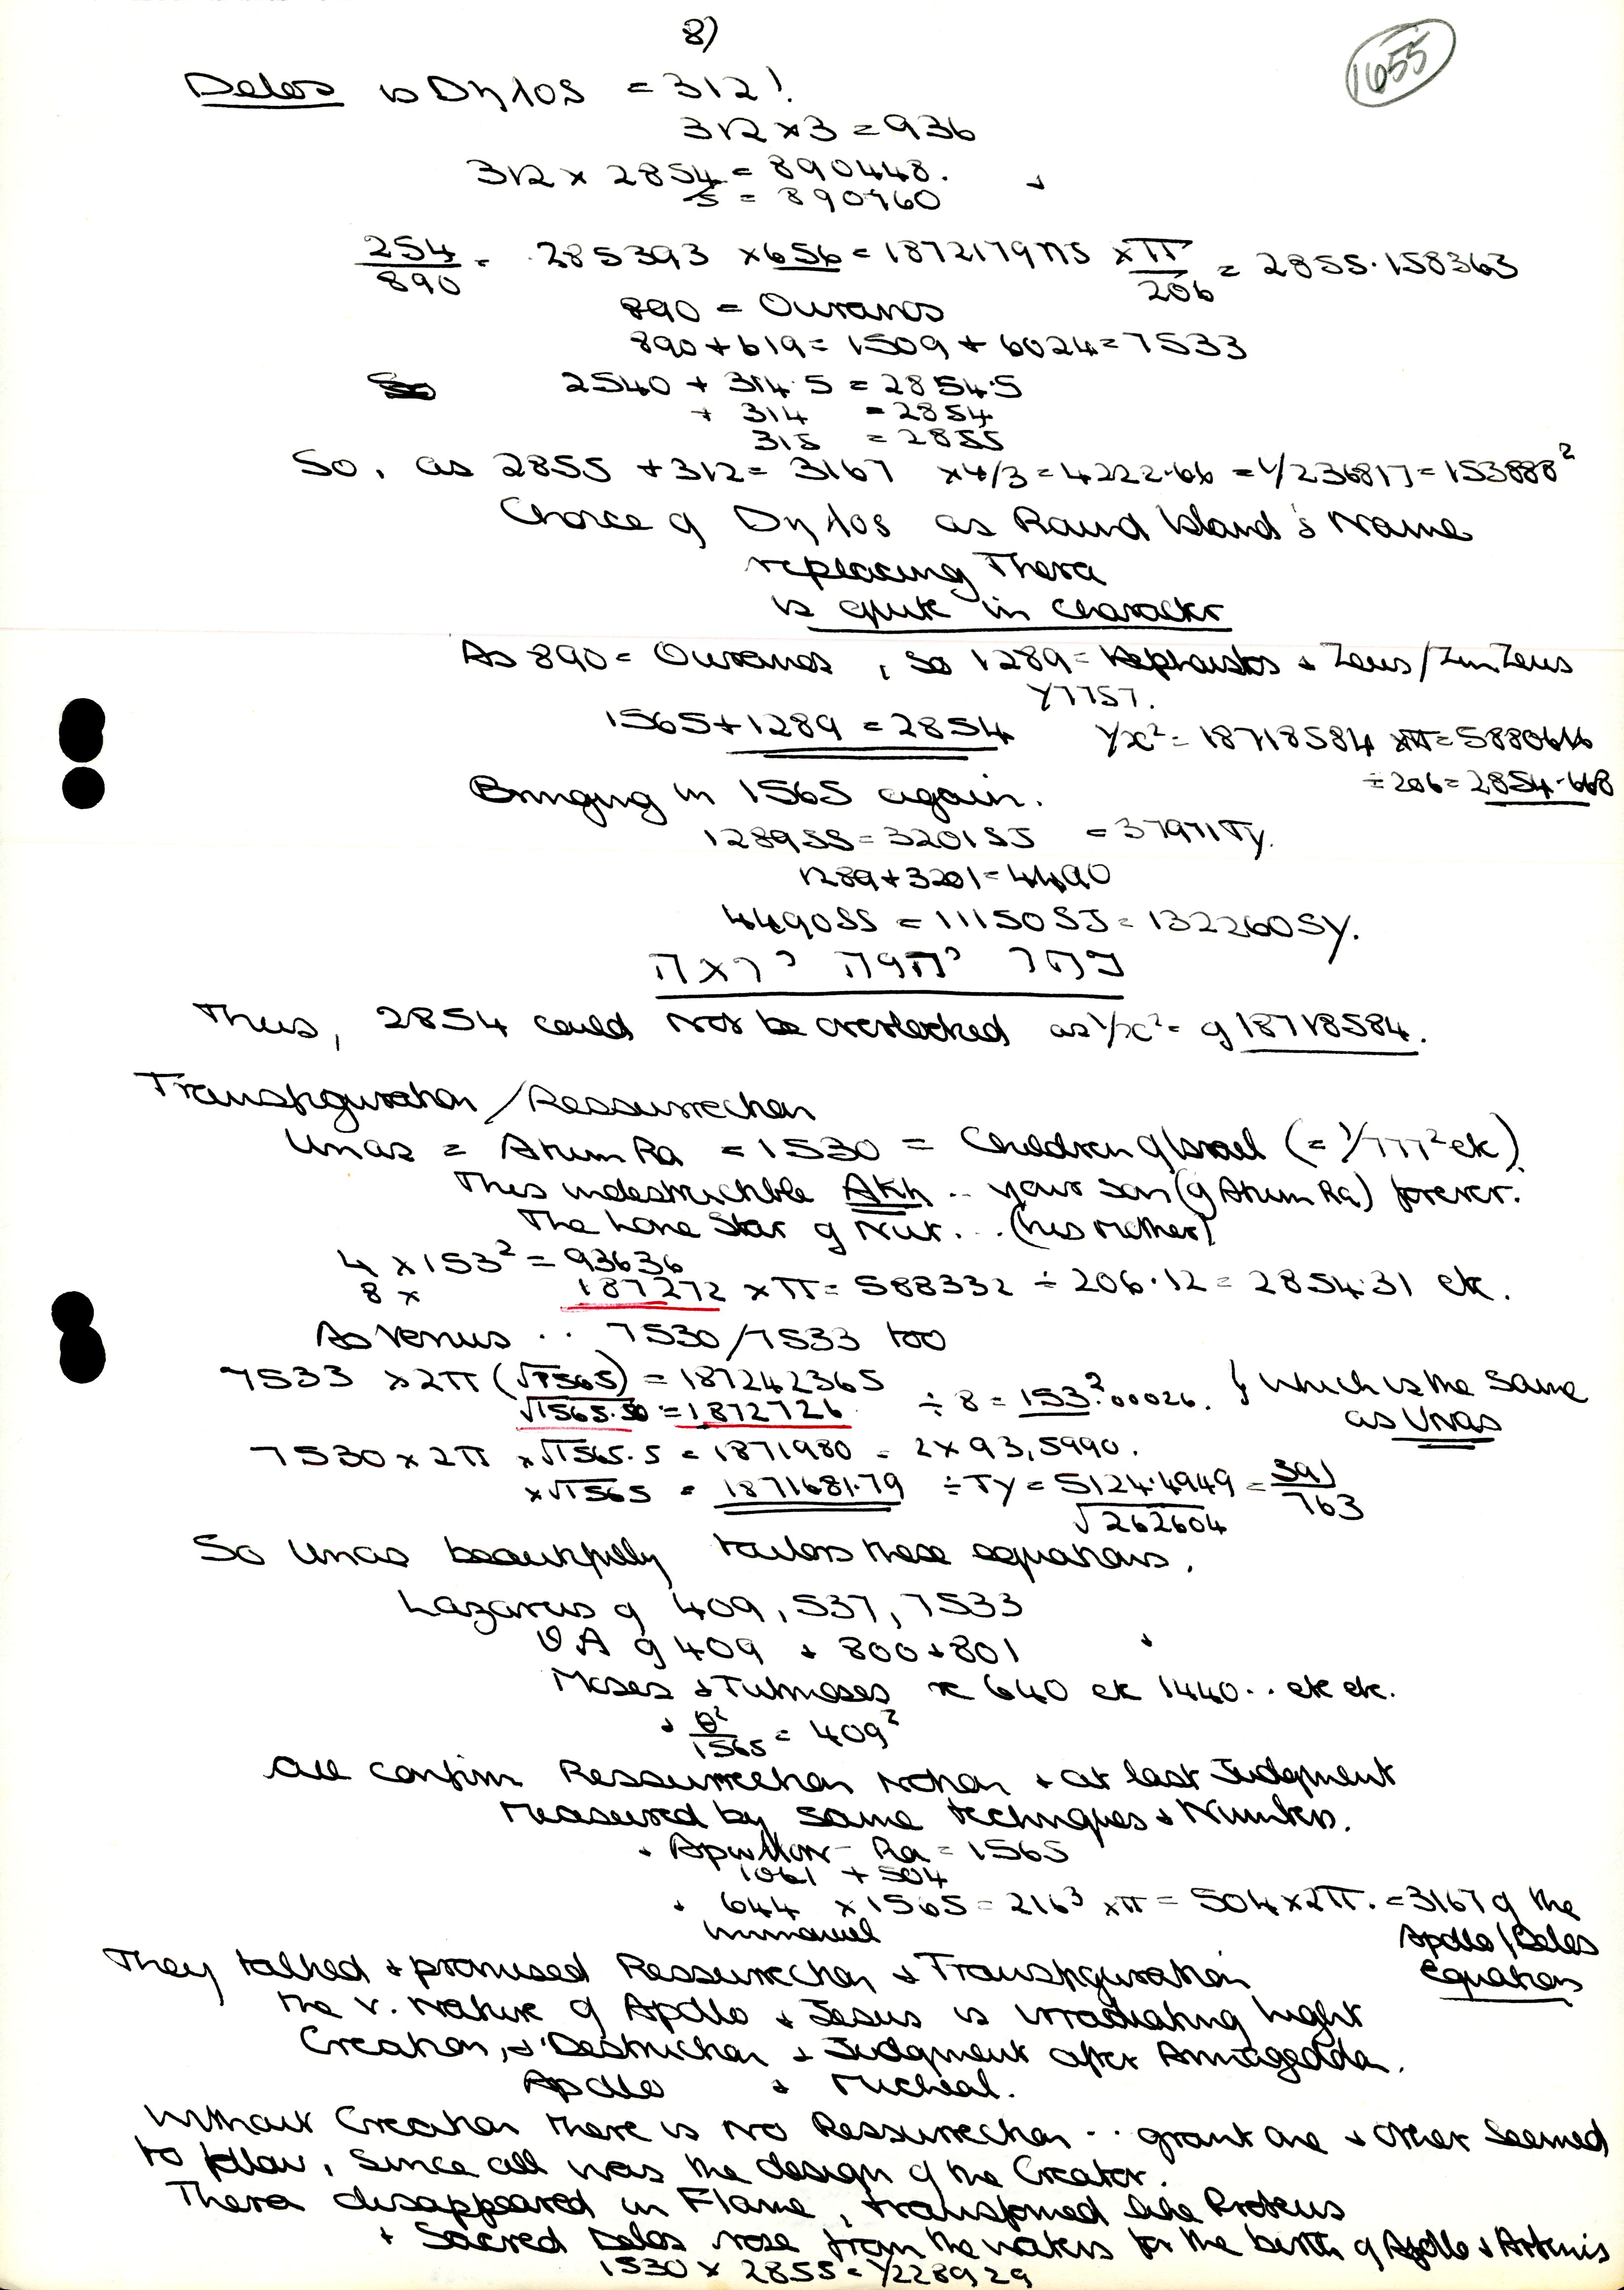 8)
1655
Delos is Dηλos = 312!
312 x 3 = 936
312 x 2854 = 890448.
5 = 890760
254/890 = .285393 x 656 = 187217975 x π/206 = 2855.158363
890 = Ouranos
890 + 619 = 1509 + 6024 = 7533
2540 + 314.5 = 2854.5
+ 314 = 2854
315 = 2855
So, as 2855 + 312 = 3167 x 4/3 = 4222.66 = 1/236817 = 153888²
Choice of Dηλos as Round Island's Name
replacing Thera
is quite in character
As 890 = Ouranos, so 1289 = Hephaistos + Zeus / Zeus
1/7757.
1565 + 1289 = 2854
1/x² = 18718584 x π = 5880616
÷ 206 = 2854.668
Bringing in 1565 again.
1289SS = 3201SJ = 37971TY.
1289 + 3201 = 4490
4490SS = 11150SJ = 132260SY.
Thus, 2854 could not be overlooked as 1/x² = of 18718584.
Transfiguration / Ressurrection
Unas = Atum Ra = 1530 = Children of Israel (= 1/777² etc).
This indestructible Akh .. your son (of Atum Ra) forever.
The Lone Star of Nut ... (his mother)
4 x 153² = 93636
8 x 187272 x π = 588332 ÷ 206.12 = 2854.31 etc.
As Venus .. 7530/7533 too
7533 x 2π (√1565) = 187242365
√1565.50 = 1872726 ÷ 8 = 153².00026. } which is the same
as Unas
7530 x 2π x √1565.5 = 1871980 = 2 x 93,5990.
x √1565 = 1871681.79 ÷ TY = 5124.4949 = 391/763
√262604
So Unas beautifully tailors these equations.
Lazarus of 409, 537, 7533
θ A of 409 + 800 + 801
Moses + Tutmoses 640 etc 1440 .. etc etc.
+ θ²/1565 = 409²
All confirm Ressurrection notion + at last Judgment
measured by same techniques + Numbers.
+ Apollon - Ra = 1565
1061 + 504
+ 644 x 1565 = 216³ x π = 504 x 2π. = 3167 of the
Immanuel
Apollo/Delos
equation
They talked + promised Ressurrection + Transfiguration
the v. nature of Apollo + Jesus is irradiating light
Creation, + Destruction + Judgment after Armageddon.
Apollo + Micheal.
Without Creation there is no Ressurrection .. grant one + other seemed
to follow, since all was the design of the Creator.
Thera disappeared in Flame, transformed like Proteus
+ Sacred Delos rose from the waters for the birth of Apollo + Artemis
1530 x 2855 = 1/228929